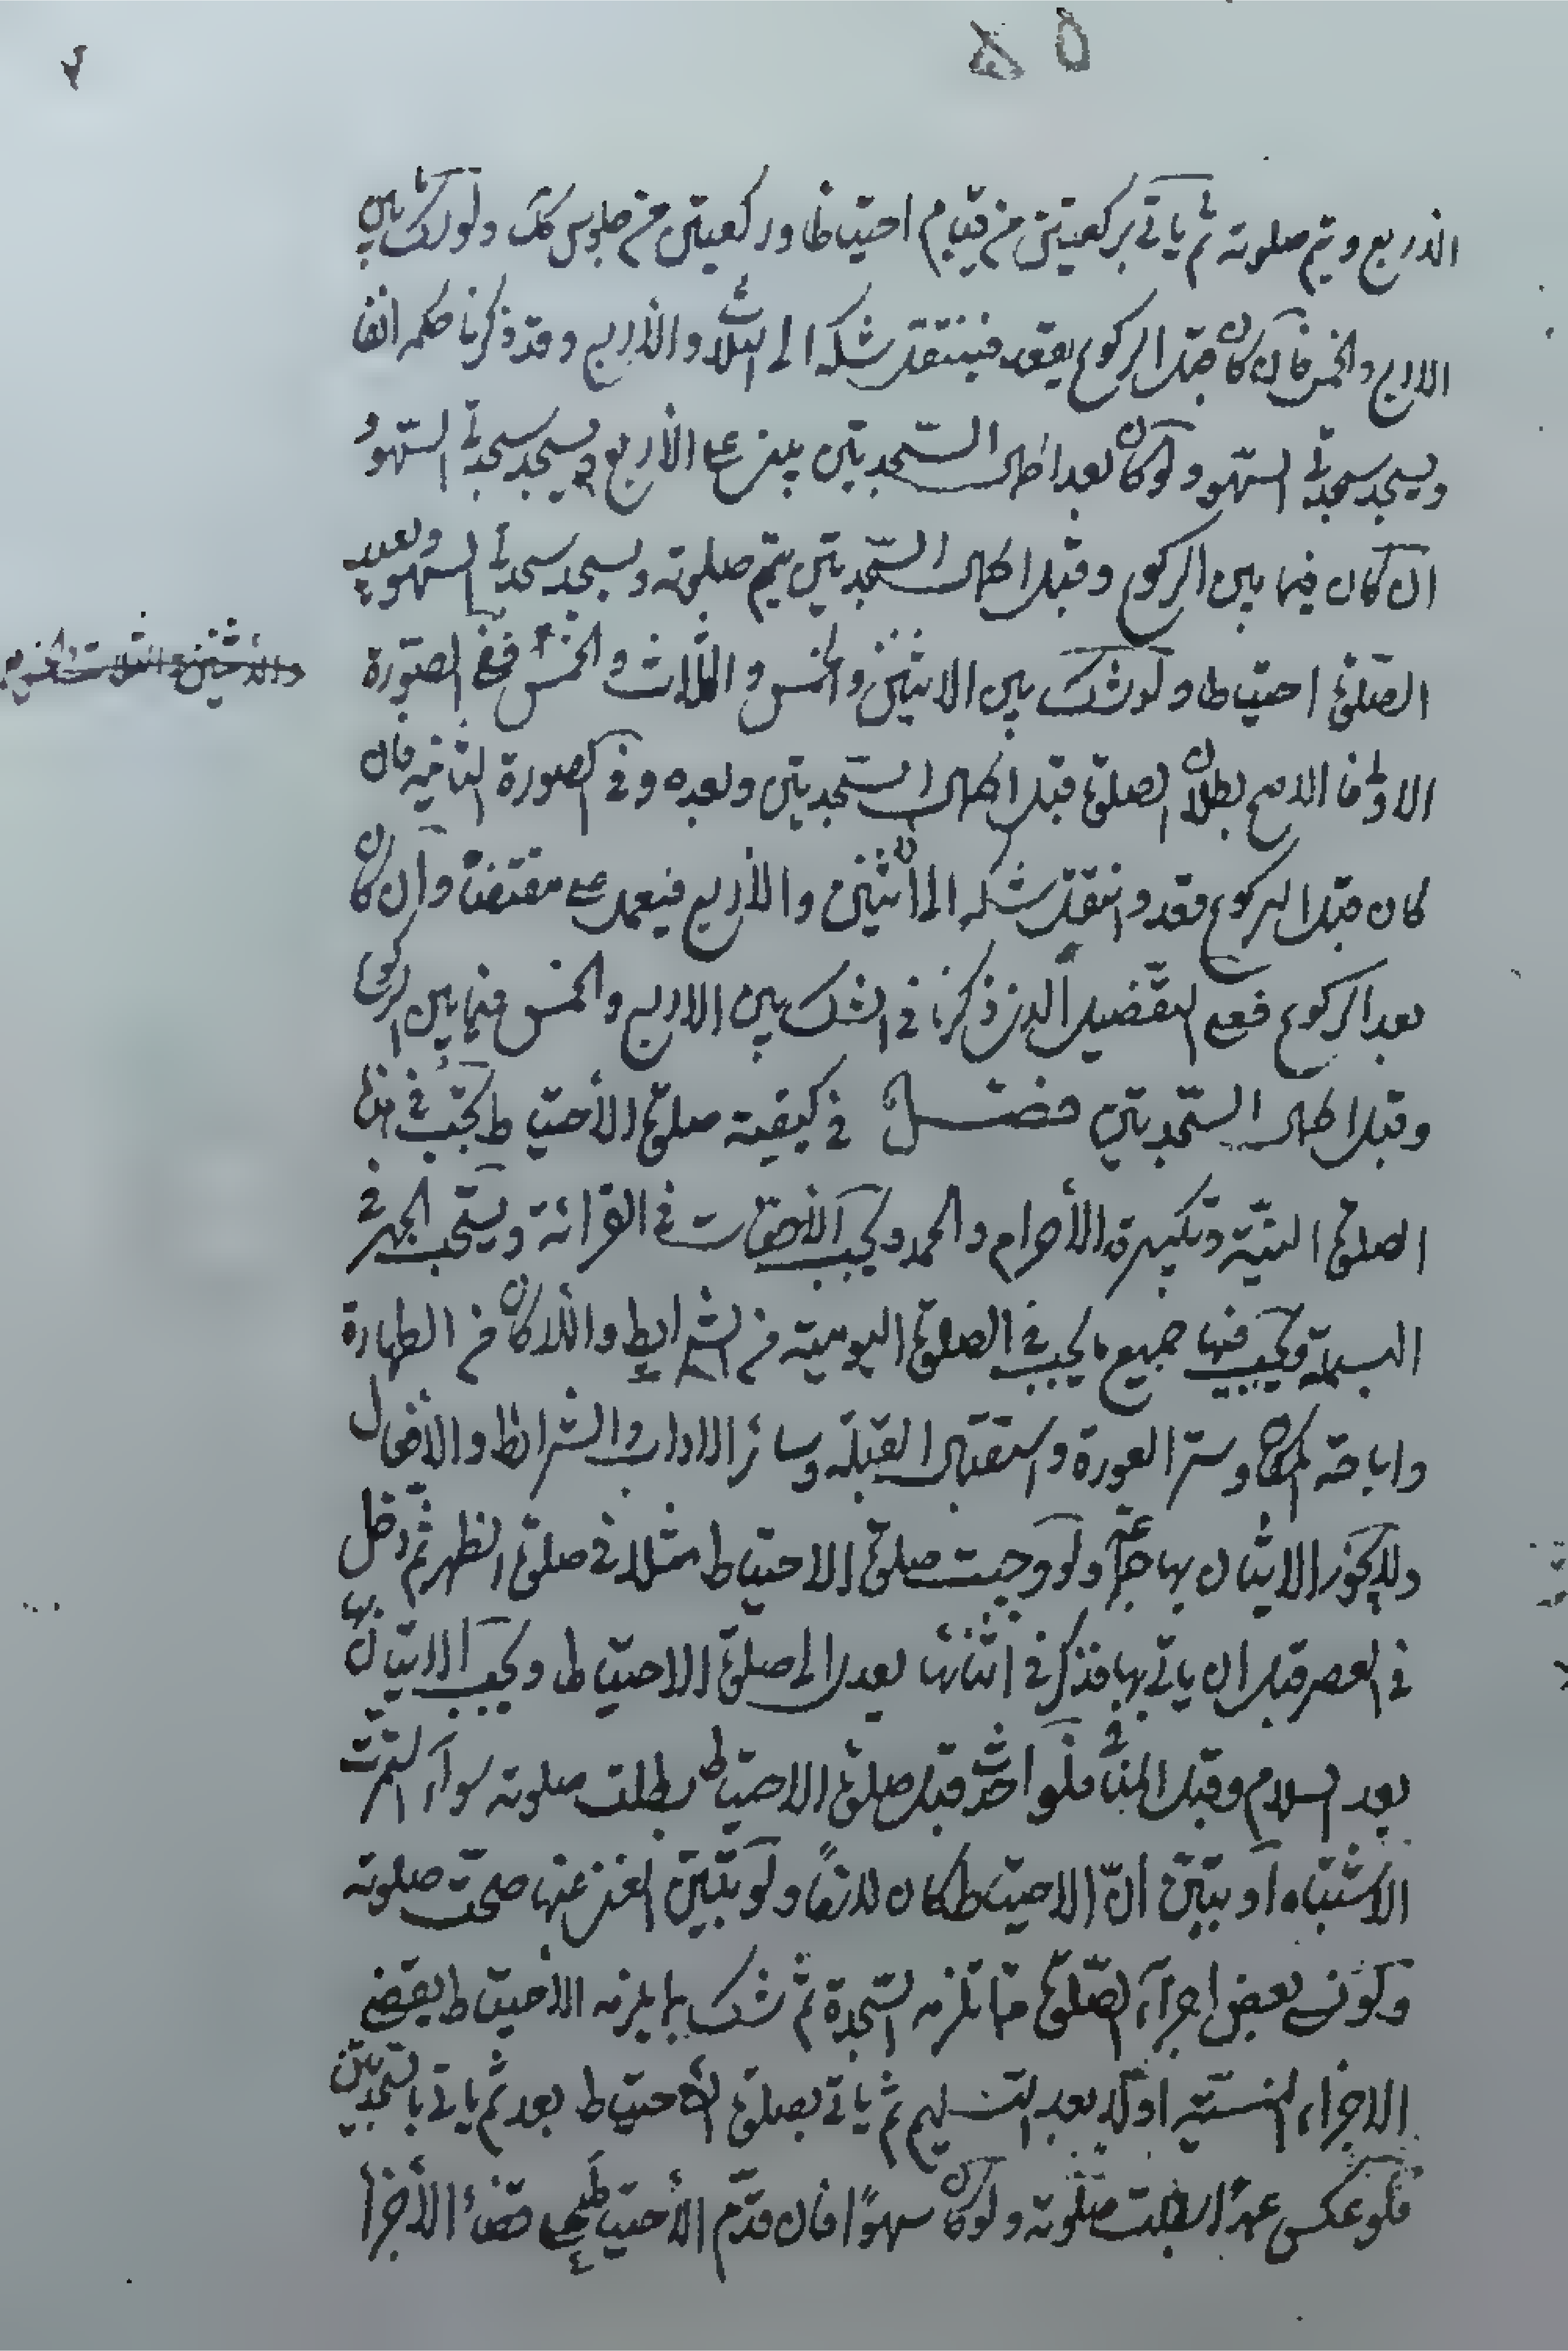 الاربع ويتم صلوته ثم ياتى بركعتين من قيام احتياطا وركعتين من جلوس كك ولو شك بين
الاربع والخمس فان كان قبل الركوع يقعد فينتقل شكه الى الثلاث والأربع وقد ذكرنا حكمه انفا
ويسجد سجدتى السهو ولو كان بعد اكمال السّجدتين يبنى على الأربع ويسجد سجدتى السّهو و
ان كان فيما بين الركوع وقبل اكمال السّجدتين يتم صلوته ويسجد سجدتى السهو ويعيد
الصّلوة احتياطا ولو شك بين الاثنين والخمس والثّلاث والخمس ففى الصّورة
الاولى فالاصح بطلان الصلوة قبل اكمال السّجدتين وبعده وفى الصورة الثانيه فان
كان قبل الركوع قعد وانتقل شكه الى الأثنين والأربع فيعمل على مقتضاه وان كان
بعد الركوع فعلى التّفضيل الّذى ذكرنا فى الشك بين الاربع والخمس فيما بين الركوع
وقبل اكمال السّجدتين فصل فى كيفية صلوة الأحتياط يجب فى هذا
الصلوة النيّة وتكبيرة الأحرام والحمد ويجب الأخفات فى القرائة ويستحب الجهر فى
البسملة ويجب فيها جميع ما يجب فى الصلوة اليومية من الشرايط والاركان من الطهارة
واباحة المكان وستر العورة واستقبال القبلة وسائر الاداب والشرائط والأفعال
ولا يجوز الاتيان بها جماعة ولو وجبت صلوة الاحتياط مثلا فى صلوة الظهر ثم دخل
فى العصر قبل ان ياتى بها فذكر فى اثنائها يعدل الى صلوة الاحتياط ويجب الاتيان بها
بعد السلام وقبل المنافى فلو احدث قبل صلوة الاحتياط بطلت صلوته سواء استمرّت
الاشتباه او تبيّن انّ الاحتياط كان لازمًا ولو تبيّن الغنى عنها صحت صلوته
ولو نسى بعض اجزاء الصّلوة ممّا تلزمه السّجدة ثمّ شك بما يلزمه الأحتياط يقضى
الاجزاء المنسيّة اوّلا بعد التسليم ثم ياتى بصلوة الأحتياط بعد ثم ياتى بالسّجدتين
فلو عكس عمدًا بطلت صلوته ولو كان سهوًا فان قدّم الأحتياط على قضاء الأجزا